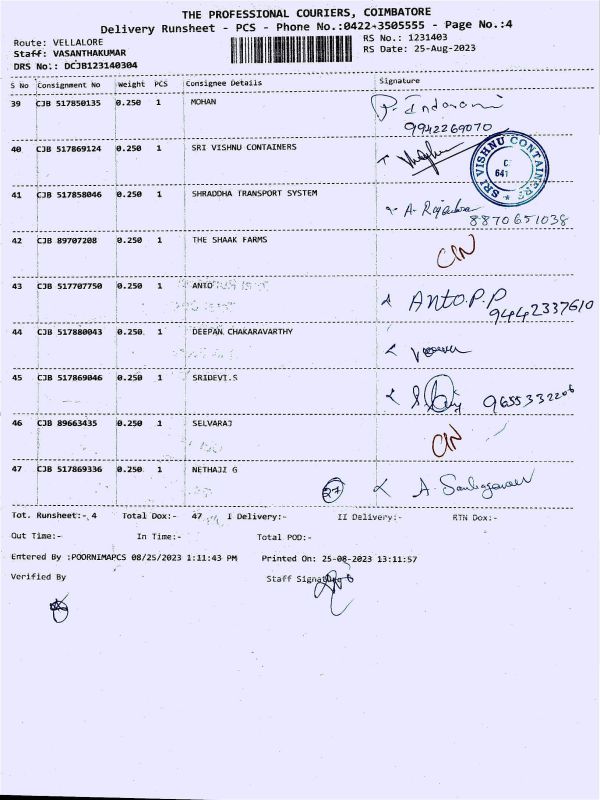 THE PROFESSIONAL COURIERS, COIMBATORE
Delivery Runsheet - PCS - Phone No.:0422-3505555 - Page No.:4
Route: VELLALORE
RS No.: 1231403
Staff: VASANTHAKUMAR
RS Date: 25-Aug-2023
DRS No.: DCJB123140304
S No Consignment No Weight PCS Consignee Details Signature
39 CJB 517850135 0.250 1 MOHAN P. Indorani
9942269070
40 CJB 517869124 0.250 1 SRI VISHNU CONTAINERS
SRI VISHNU CONTAINERS
641
41 CJB 517858046 0.250 1 SHRADDHA TRANSPORT SYSTEM A. 
8870651038
42 CJB 89707208 0.250 1 THE SHAAK FARMS C/N
43 CJB 517707750 0.250 1 ANTO ANTO.P.P
9442337610
44 CJB 517880043 0.250 1 DEEPAN CHAKARAVARTHY
45 CJB 517869046 0.250 1 SRIDEVI.S 9655332206
46 CJB 89663435 0.250 1 SELVARAJ C/N
47 CJB 517869336 0.250 1 NETHAJI G 27 A.
Tot. Runsheet:- 4 Total Dox:- 47 I Delivery:- II Delivery:- RTN Dox:-
Out Time:- In Time:- Total POD:-
Entered By :POORNIMAPCS 08/25/2023 1:11:43 PM Printed On: 25-08-2023 13:11:57
Verified By Staff Signature